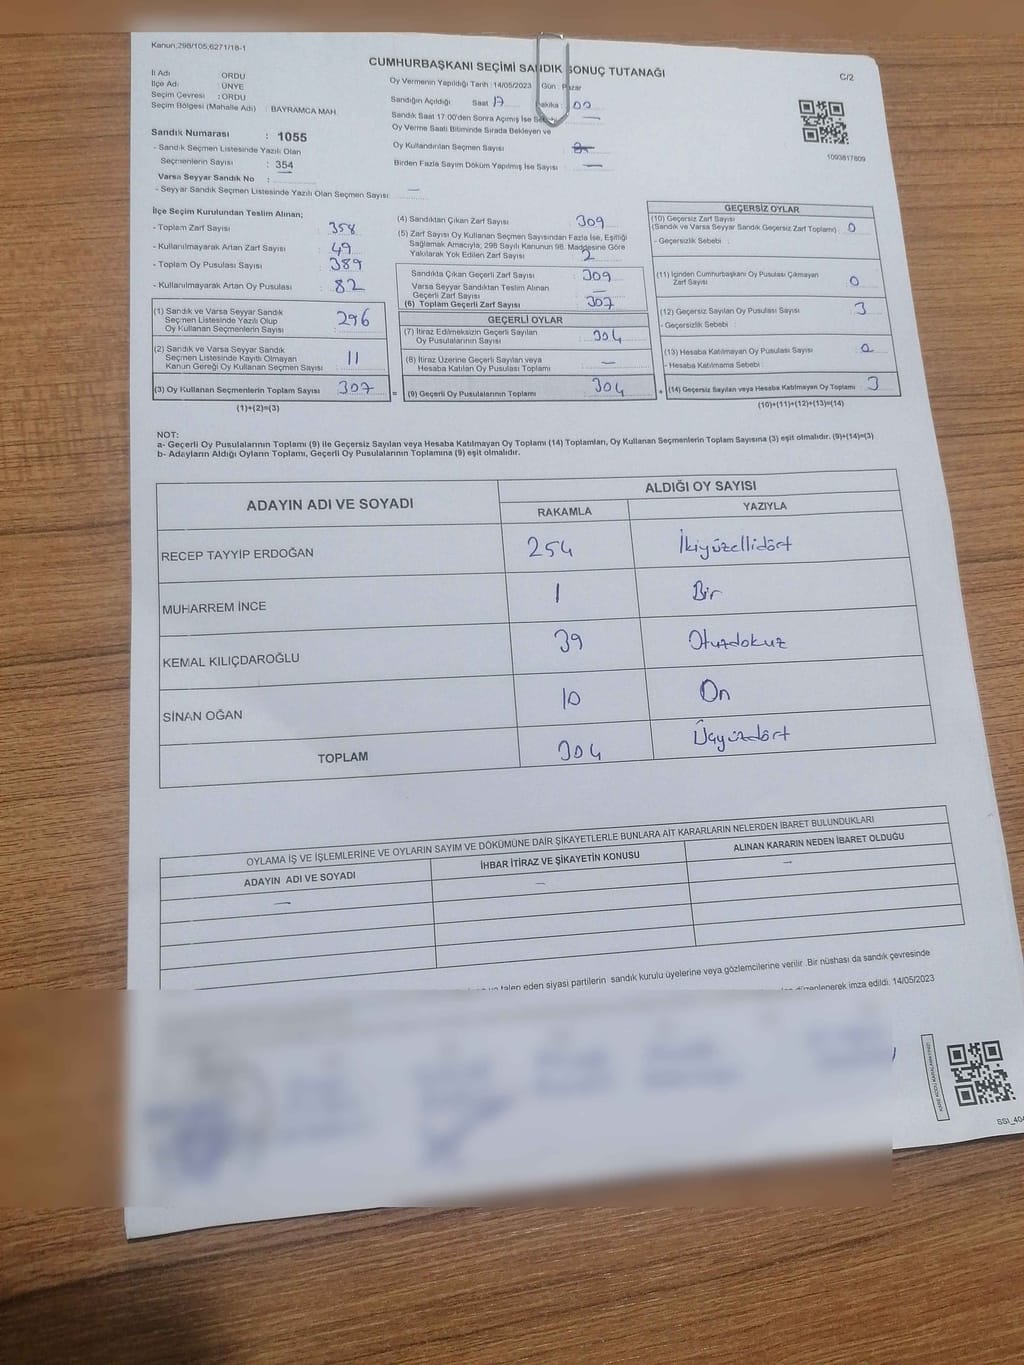 Kanun;298/105;6271/18-1
CUMHURBAŞKANI SEÇİMİ SANDIK SONUÇ TUTANAĞI
C/2
İl Adı ORDU
İlçe Adı : ÜNYE
Seçim Çevresi : ORDU
Seçim Bölgesi (Mahalle Adı) : BAYRAMCA MAH.
Oy Vermenin Yapıldığı Tarih :14/05/2023 Gün : Pazar
Sandığın Açıldığı Saat 17 Dakika : 00
Sandık Saat 17:00'den Sonra Açılmış İse
Oy Verme Saati Bitiminde Sırada Bekleyen ve
Oy Kullandırılan Seçmen Sayısı
Birden Fazla Sayım Döküm Yapılmış İse Sayısı : —
1093817809
Sandık Numarası : 1055
- Sandık Seçmen Listesinde Yazılı Olan
Seçmenlerin Sayısı : 354
Varsa Seyyar Sandık No :
- Seyyar Sandık Seçmen Listesinde Yazılı Olan Seçmen Sayısı: —
İlçe Seçim Kurulundan Teslim Alınan;
- Toplam Zarf Sayısı : 358
- Kullanılmayarak Artan Zarf Sayısı : 49
- Toplam Oy Pusulası Sayısı : 389
- Kullanılmayarak Artan Oy Pusulası : 82
(1) Sandık ve Varsa Seyyar Sandık
Seçmen Listesinde Yazılı Olup
Oy Kullanan Seçmenlerin Sayısı : 296
(2) Sandık ve Varsa Seyyar Sandık
Seçmen Listesinde Kayıtlı Olmayan
Kanun Gereği Oy Kullanan Seçmen Sayısı : 11
(3) Oy Kullanan Seçmenlerin Toplam Sayısı : 307
(1)+(2)=(3)
(4) Sandıktan Çıkan Zarf Sayısı : 309
(5) Zarf Sayısı Oy Kullanan Seçmen Sayısından Fazla İse, Eşitliği
Sağlamak Amacıyla, 298 Sayılı Kanunun 98. Maddesine Göre
Yakılarak Yok Edilen Zarf Sayısı : 2
Sandıkta Çıkan Geçerli Zarf Sayısı : 309
Varsa Seyyar Sandıktan Teslim Alınan
Geçerli Zarf Sayısı : —
(6) Toplam Geçerli Zarf Sayısı : 307
GEÇERLİ OYLAR
(7) İtiraz Edilmeksizin Geçerli Sayılan
Oy Pusulasının Sayısı : 304
(8) İtiraz Üzerine Geçerli Sayılan veya
Hesaba Katılan Oy Pusulası Toplamı : —
= (9) Geçerli Oy Pusulalarının Toplamı : 304
GEÇERSİZ OYLAR
(10) Geçersiz Zarf Sayısı
(Sandık ve Varsa Seyyar Sandık Geçersiz Zarf Toplamı) : 0
- Geçersizlik Sebebi :
(11) İçinden Cumhurbaşkanı Oy Pusulası Çıkmayan
Zarf Sayısı : 0
(12) Geçersiz Sayılan Oy Pusulası Sayısı : 3
- Geçersizlik Sebebi :
(13) Hesaba Katılmayan Oy Pusulası Sayısı : 0
- Hesaba Katılmama Sebebi :
+ (14) Geçersiz Sayılan veya Hesaba Katılmayan Oy Toplamı : 3
(10)+(11)+(12)+(13)=(14)
NOT:
a- Geçerli Oy Pusulalarının Toplamı (9) ile Geçersiz Sayılan veya Hesaba Katılmayan Oy Toplamı (14) Toplamları, Oy Kullanan Seçmenlerin Toplam Sayısına (3) eşit olmalıdır. (9)+(14)=(3)
b- Adayların Aldığı Oyların Toplamı, Geçerli Oy Pusulalarının Toplamına (9) eşit olmalıdır.
ADAYIN ADI VE SOYADI ALDIĞI OY SAYISI
RAKAMLA YAZIYLA
RECEP TAYYİP ERDOĞAN 254 İkiyüzellidört
MUHARREM İNCE 1 Bir
KEMAL KILIÇDAROĞLU 39 Otuzdokuz
SİNAN OĞAN 10 On
TOPLAM 304 Üçyüzdört
OYLAMA İŞ VE İŞLEMLERİNE VE OYLARIN SAYIM VE DÖKÜMÜNE DAİR ŞİKAYETLERLE BUNLARA AİT KARARLARIN NELERDEN İBARET BULUNDUKLARI
ADAYIN ADI VE SOYADI İHBAR İTİRAZ VE ŞİKAYETİN KONUSU ALINAN KARARIN NEDEN İBARET OLDUĞU
— — —
talep eden siyasi partilerin sandık kurulu üyelerine veya gözlemcilerine verilir .Bir nüshası da sandık çevresinde
düzenlenerek imza edildi. 14/05/2023